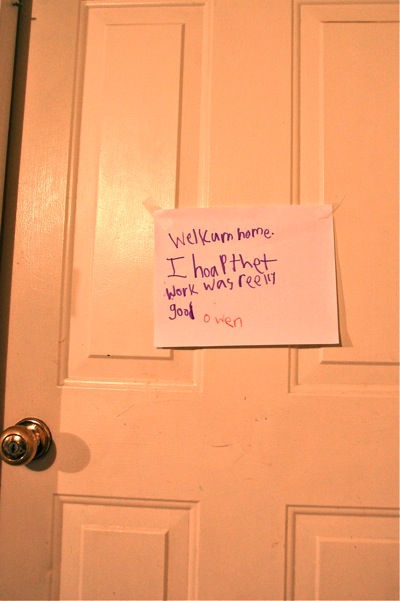 Welkum home.
I hoap thet
work was reelly
good owen